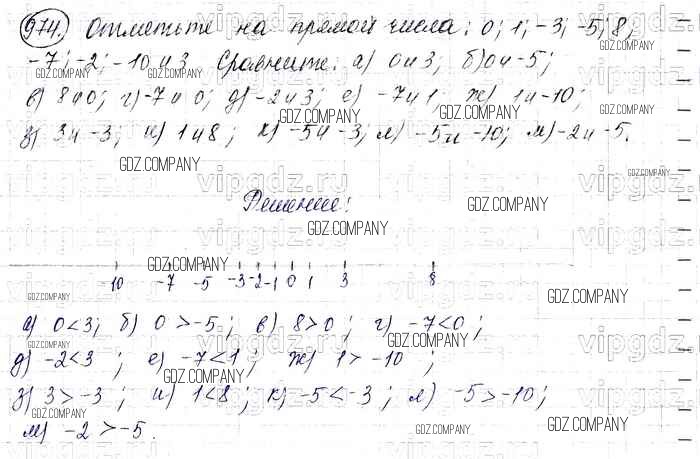 974. Отметьте на прямой числа: 0; 1; -3; -5; 8;
-7; -2; -10 и 3. Сравните: а) 0 и 3; б) 0 и -5;
в) 8 и 0; г) -7 и 0; д) -2 и 3; е) -7 и 1; ж) 1 и -10;
з) 3 и -3; и) 1 и 8; к) -5 и -3; л) -5 и -10; м) -2 и -5.
Решение:
10 -7 -5 -3 -2 -1 0 1 3 8
а) 0<3; б) 0>-5; в) 8>0; г) -7<0;
д) -2<3; е) -7<1; ж) 1>-10;
з) 3>-3; и) 1<8; к) -5<-3; л) -5>-10;
м) -2>-5.
GDZ.COMPANY
vipgdz.ru